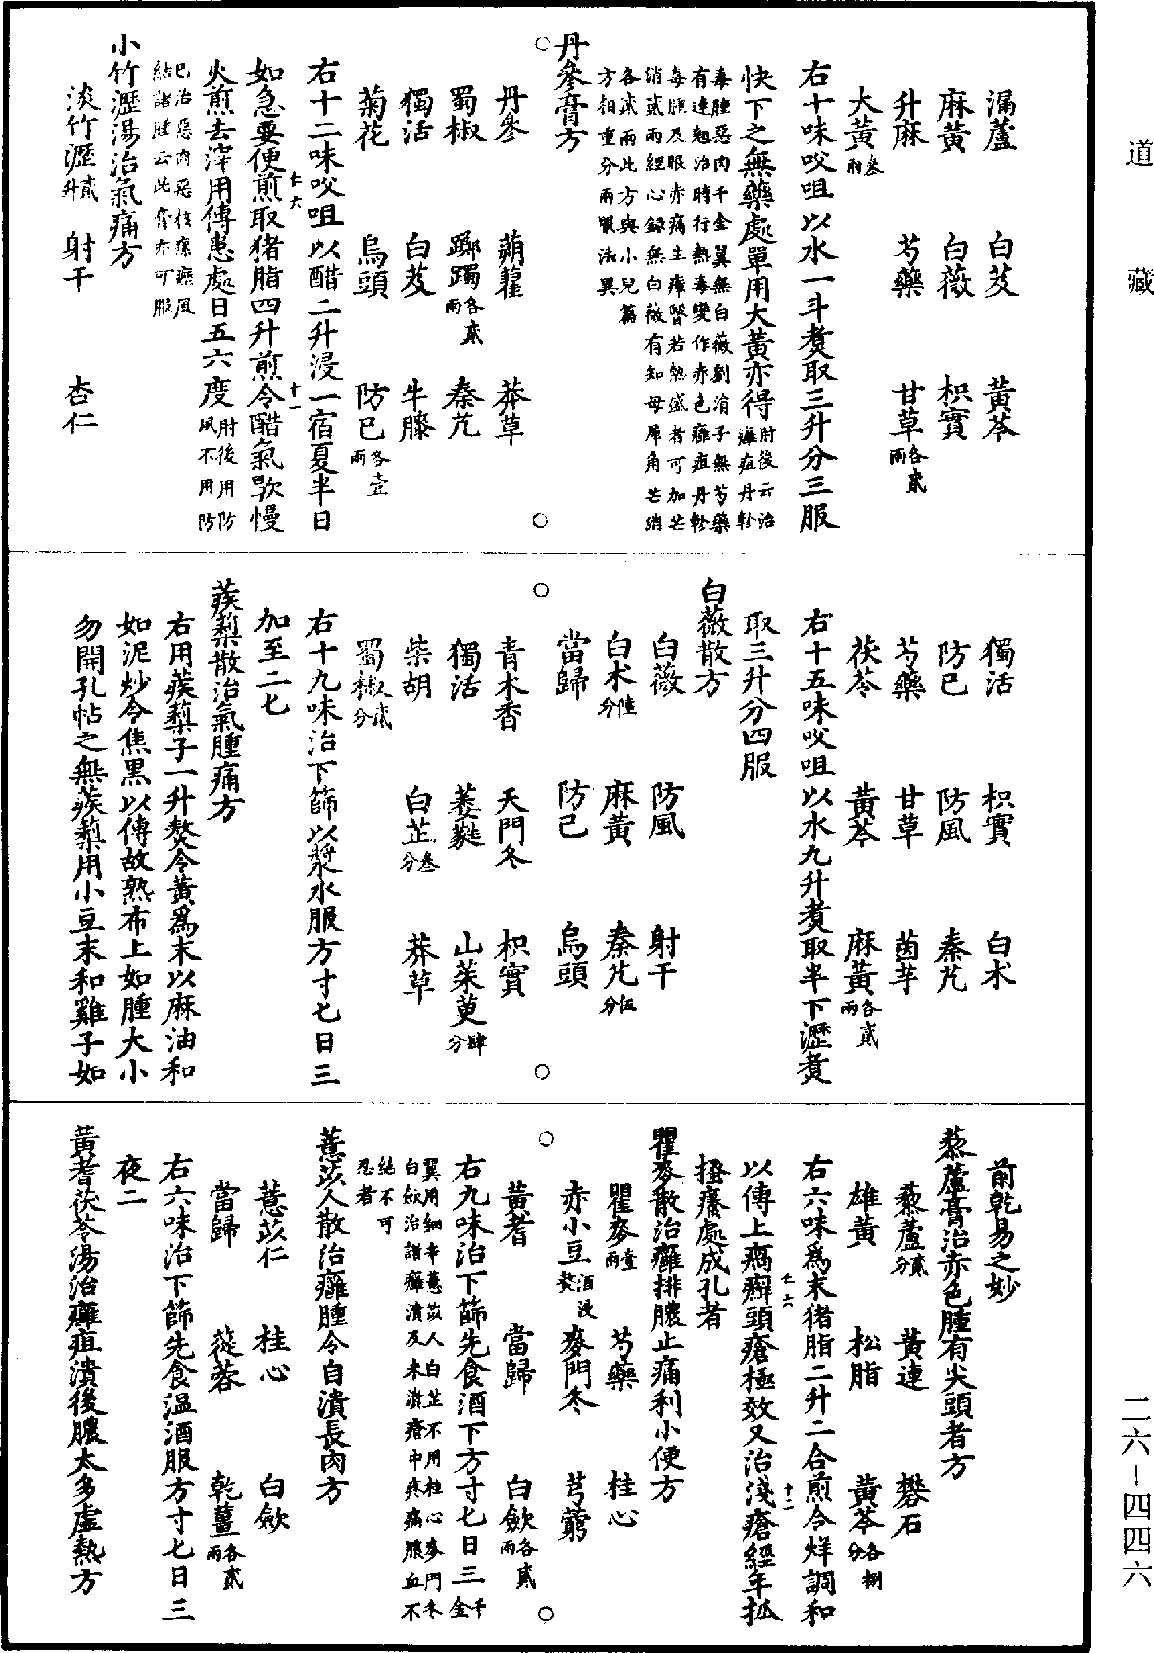 道藏
漏蘆 白芨 黃芩
麻黃 白薇 枳實
升麻 芍藥 甘草各貳兩
大黃叁兩
右十味㕮咀以水一斗煑取三升分三服
快下之無藥處單用大黃亦得肘後云治癰疽丹軫
毒腫惡肉千金翼無白薇劉涓子無芍藥
有連翹治時行熱毒變作赤色癰疽丹軫
毒腫及眼赤痛生瘴瞖若熱盛者可加芒
消貳兩經心録無白薇有知母犀角芒硝
各貳兩此方與小兒篇
方相重分兩服法異
丹參膏方
丹參 蒴藋 莽草
蜀椒 躑躅各貳兩 秦艽
獨活 白芨 牛膝
菊花 烏頭 防已各壹兩
右十二味㕮咀以醋二升浸一宿夏半日
如急要便煎取猪脂四升煎令醋氣歇慢
火煎去滓用傅患處日五六度肘後用防風不用防
巳治惡肉惡核瘰癧風
結諸腫云此膏亦可服
小竹瀝湯治氣痛方
淡竹瀝貳升 射干 杏仁
獨活 枳實 白术
防已 防風 秦艽
芍藥 甘草 茵芋
茯苓 黃芩 麻黃各貳兩
右十五味㕮咀以水九升煑取半下瀝煑
取三升分四服
白薇散方
白薇 防風 射干
白术陸分 麻黃 秦艽伍分
當歸 防已 烏頭
青木香 天門冬 枳實
獨活 萎蕤 山茱萸肆分
柴胡 白芷叁分 莽草
蜀椒貳分
右十九味治下篩以漿水服方寸匕日三
加至二匕
蒺䔧散治氣腫痛方
右用蒺䔧子一升熬令黃爲末以麻油和
如泥炒令焦黑以傅故熟布上如腫大小
勿開孔帖之無蒺䔧用小豆末和雞子如
前乾易之妙
蔾蘆膏治赤色腫有尖頭者方
蔾蘆貳分 黃連 礬石
雄黃 松脂 黃芩各捌分
右六味爲末猪脂二升二合煎令烊調和
以傅上瘑癬頭瘡極效又治淺瘡經年抓
搔癢處成孔者
瞿麥散治癰排膿止痛利小便方
瞿麥壹兩 芍藥 桂心
赤小豆酒浸熬 麥門冬 芎藭
黃耆 當歸 白歛各貳兩
右九味治下篩先食酒下方寸匕日三千金
翼用細辛薏苡人白芷不用桂心麥門冬
白歛治諸癰潰及未潰瘡中疼痛膿血不
絕不可
忍者
薏苡人散治癰腫令自潰長肉方
薏苡仁 桂心 白歛
當歸 蓯蓉 乾薑各貳兩
右六味治下篩先食温酒服方寸匕日三
夜二
黃耆茯苓湯治癰疽潰後膿太多虛熱方
二六–四四六